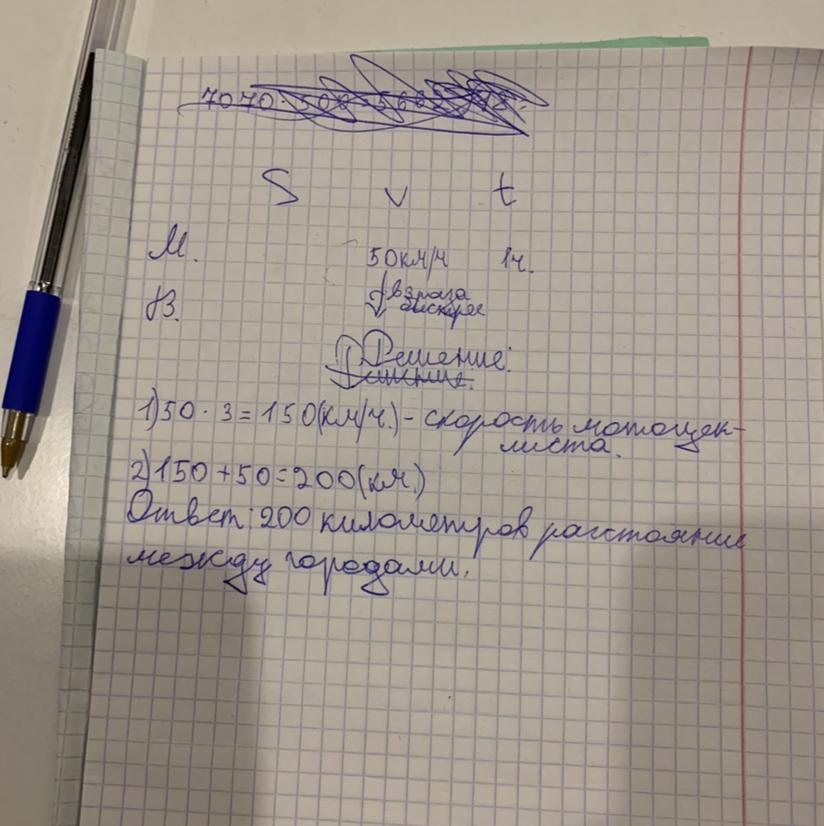 S v t
М. 50км/ч 1ч.
В. в 3 раза
быстрее
Решение:
1) 50 · 3 = 150 (км/ч.) - скорость мотоцек-
листа.
2) 150 + 50 = 200 (км.)
Ответ: 200 километров расстояние
между городами.